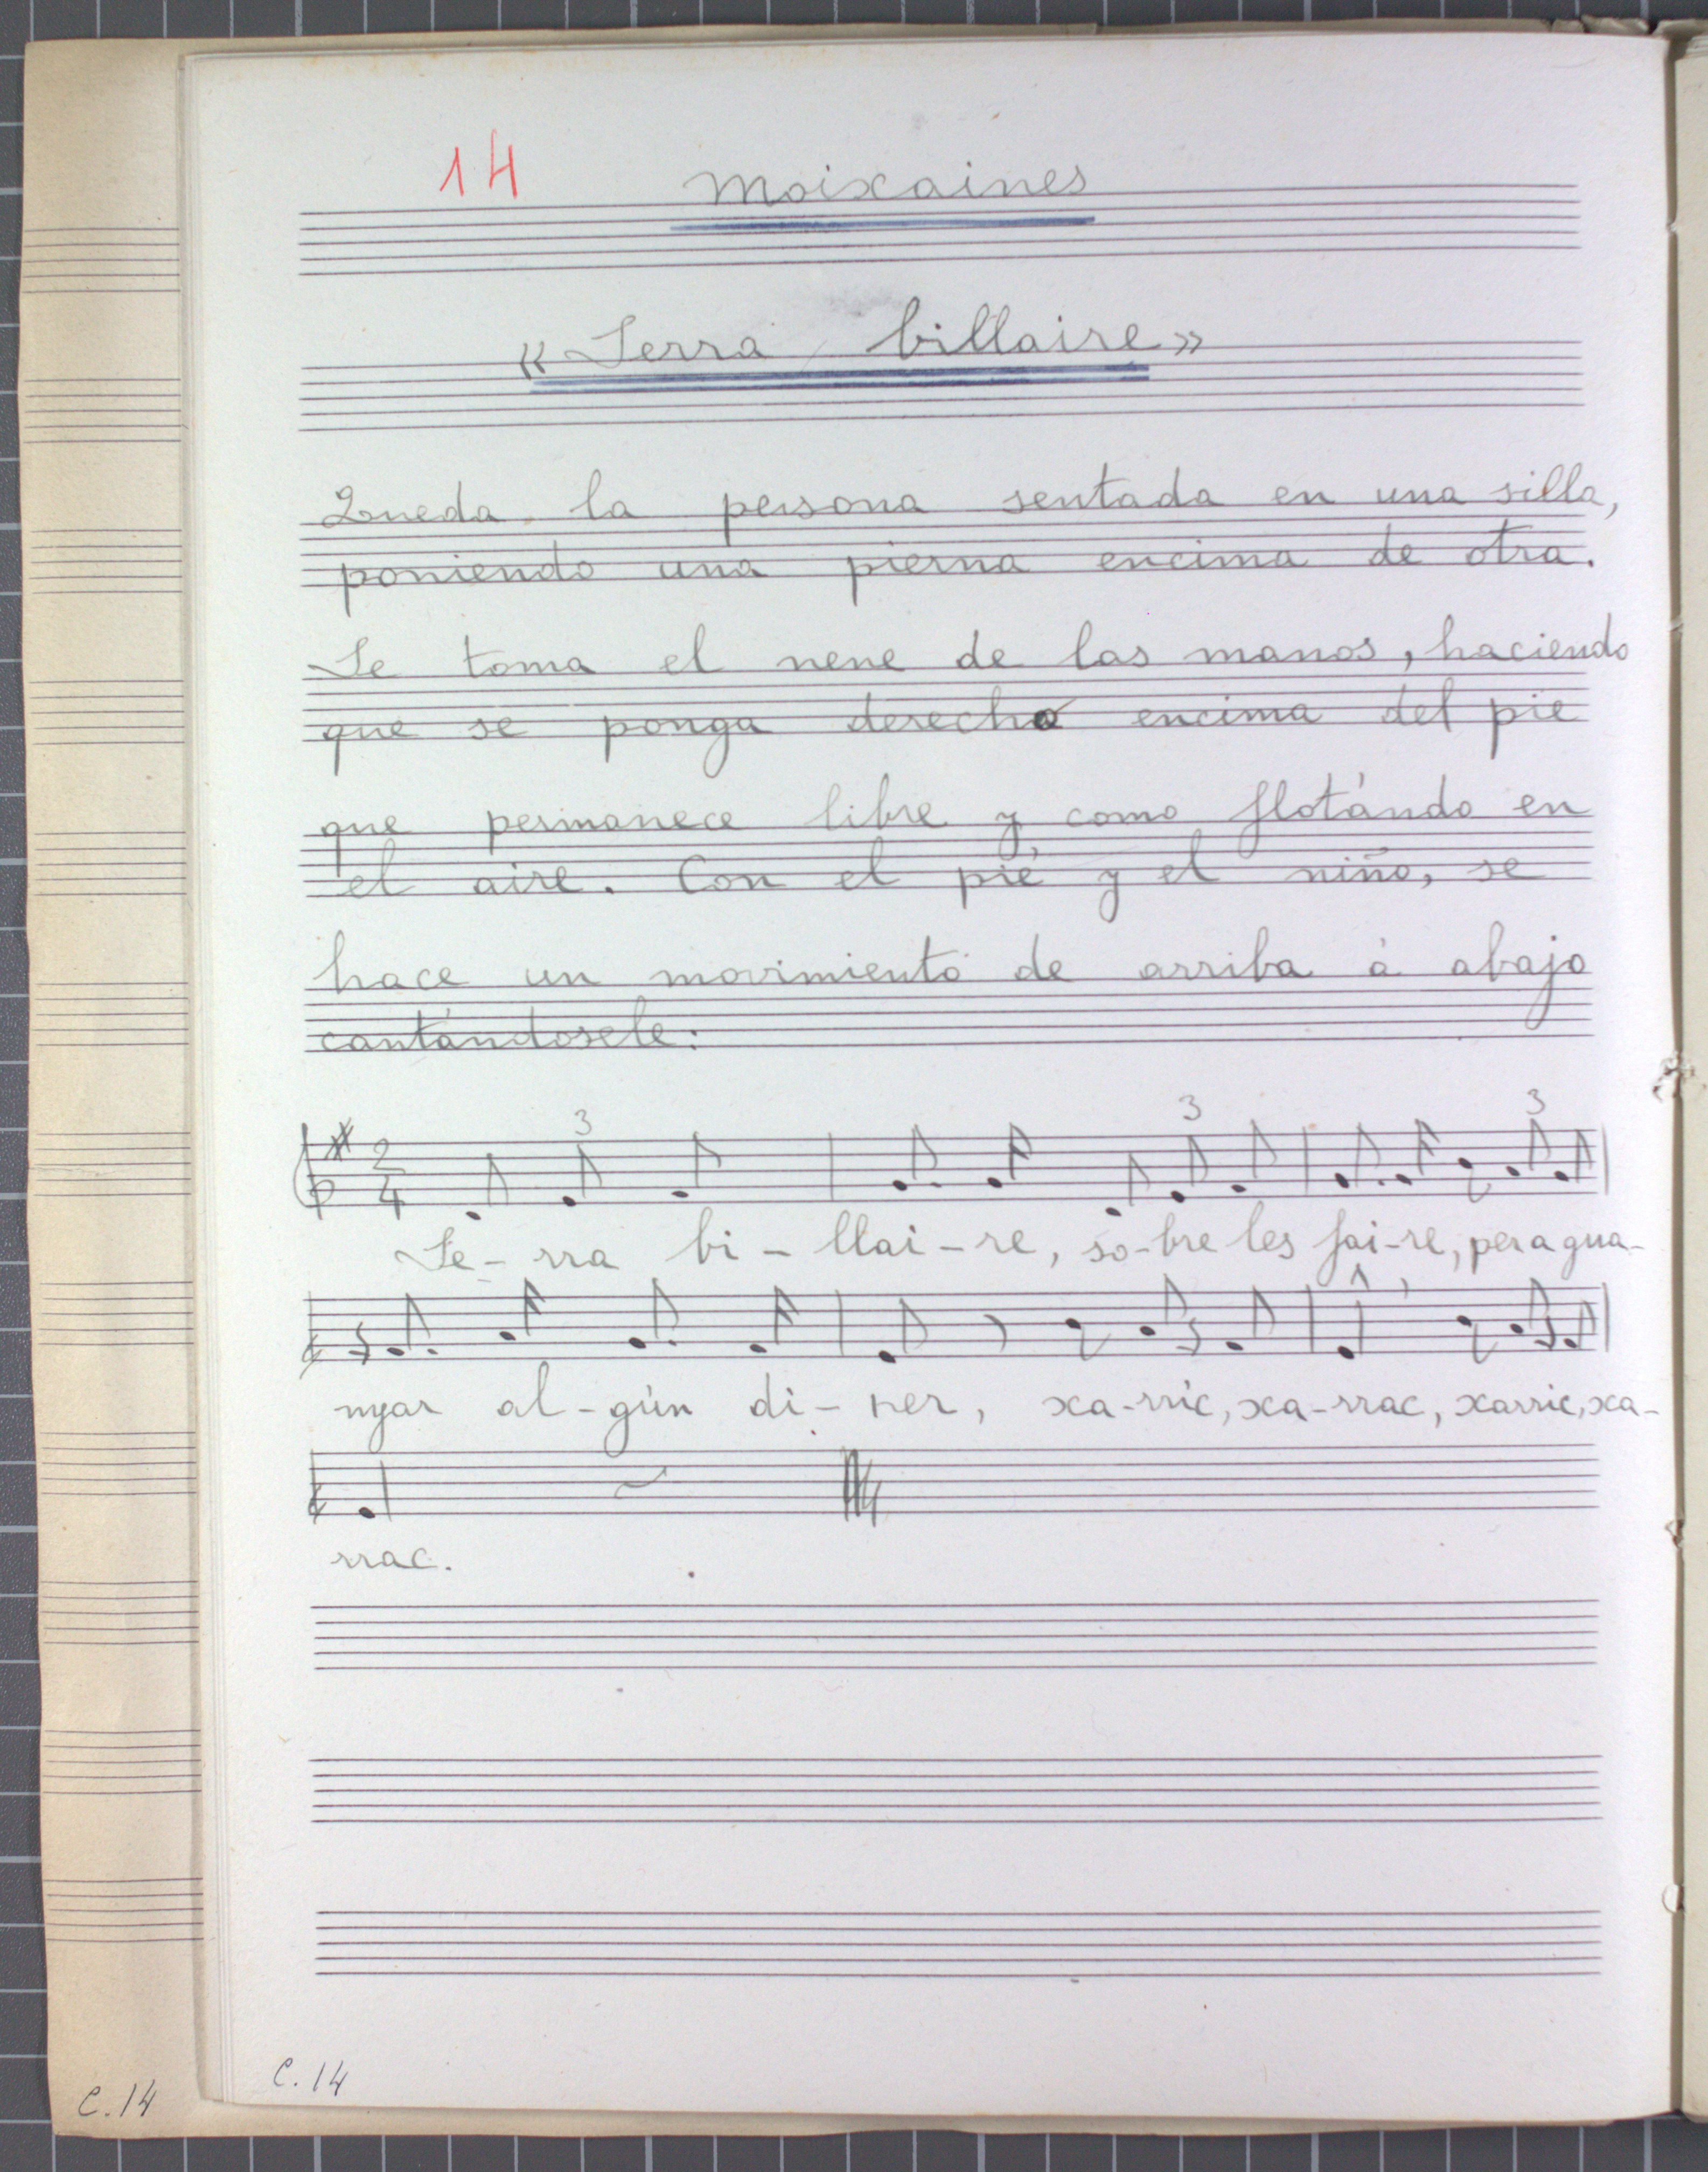 14 Moixaines
«Serra billaire»
Queda la persona sentada en una silla,
poniendo una pierna encima de otra.
Se toma el nene de las manos, haciendo
que se ponga derecho encima del pie
que permanece libre y como flotándo en
el aire. Con el pié y el niño, se
hace un movimiento de arriba à abajo
cantándosele:
3 3 3
2
4
Se-rra bi-llai-re, so-bre les fai-re, per a gua-
nyar al-gún di-ner, xa-rric, xa-rrac, xarric, xa-
rrac.
C.14
C.14